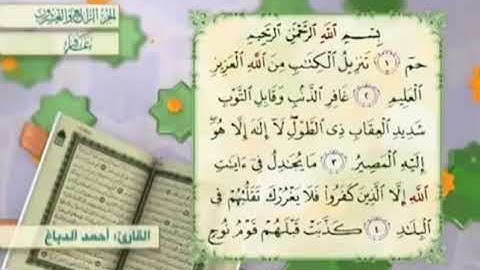 الجزء الرابع والعشرون
سورة غافر
بِسْمِ اللَّهِ الرَّحْمَٰنِ الرَّحِيمِ
حمٓ ١ تَنزِيلُ الْكِتَابِ مِنَ اللَّهِ الْعَزِيزِ
الْعَلِيمِ ٢ غَافِرِ الذَّنبِ وَقَابِلِ التَّوْبِ
شَدِيدِ الْعِقَابِ ذِي الطَّوْلِ لَا إِلَٰهَ إِلَّا هُوَ
إِلَيْهِ الْمَصِيرُ ٣ مَا يُجَادِلُ فِي ءَايَاتِ
اللَّهِ إِلَّا الَّذِينَ كَفَرُوا فَلَا يَغْرُرْكَ تَقَلُّبُهُمْ فِي
الْبِلَادِ ٤ كَذَّبَتْ قَبْلَهُمْ قَوْمُ نُوحٍ
القارئ: أحمد الدباغ